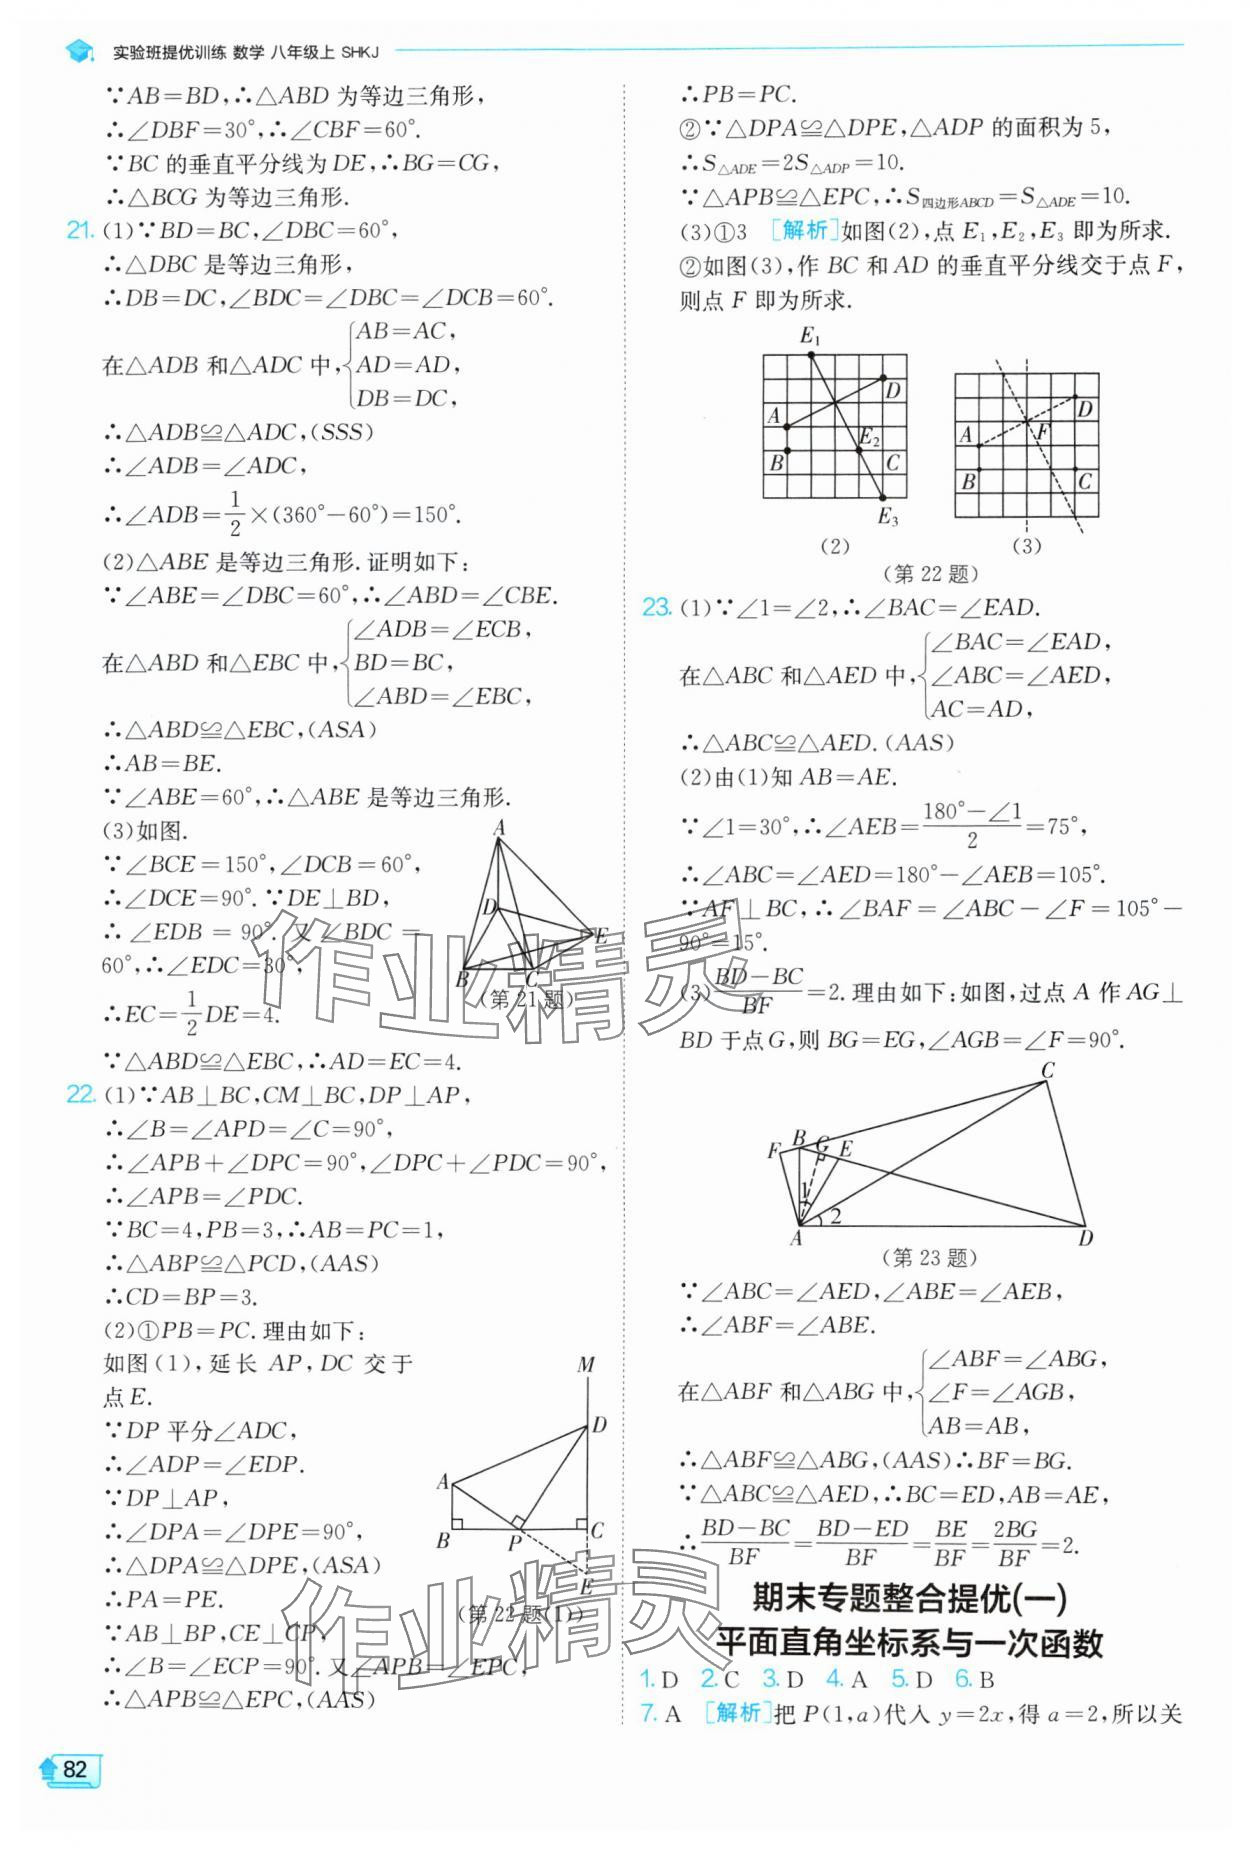 实验班提优训练 数学 八年级上 SHKJ
∵AB=BD,∴△ABD 为等边三角形,
∴∠DBF=30°,∴∠CBF=60°.
∵BC 的垂直平分线为 DE,∴BG=CG,
∴△BCG 为等边三角形.
21. (1)∵BD=BC,∠DBC=60°,
∴△DBC 是等边三角形,
∴DB=DC,∠BDC=∠DBC=∠DCB=60°.
AB=AC,
在△ADB 和△ADC 中,{AD=AD,
DB=DC,
∴△ADB≌△ADC,(SSS)
∴∠ADB=∠ADC,
∴∠ADB=1/2×(360°-60°)=150°.
(2)△ABE 是等边三角形.证明如下:
∵∠ABE=∠DBC=60°,∴∠ABD=∠CBE.
∠ADB=∠ECB,
在△ABD 和△EBC 中,{BD=BC,
∠ABD=∠EBC,
∴△ABD≌△EBC,(ASA)
∴AB=BE.
∵∠ABE=60°,∴△ABE 是等边三角形.
(3)如图.
∵∠BCE=150°,∠DCB=60°,
∴∠DCE=90°.∵DE⊥BD,
∴∠EDB=90°.又∠BDC=
60°,∴∠EDC=30°,
∴EC=1/2DE=4.
∵△ABD≌△EBC,∴AD=EC=4.
A
D
E
B
C
(第 21 题)
22. (1)∵AB⊥BC,CM⊥BC,DP⊥AP,
∴∠B=∠APD=∠C=90°,
∴∠APB+∠DPC=90°,∠DPC+∠PDC=90°,
∴∠APB=∠PDC.
∵BC=4,PB=3,∴AB=PC=1,
∴△ABP≌△PCD,(AAS)
∴CD=BP=3.
(2)①PB=PC.理由如下:
如图(1),延长 AP,DC 交于
点E.
∵DP 平分∠ADC,
∴∠ADP=∠EDP.
∵DP⊥AP,
∴∠DPA=∠DPE=90°,
∴△DPA≌△DPE,(ASA)
∴PA=PE.
∵AB⊥BP,CE⊥CP,
∴∠B=∠ECP=90°.又∠APB=∠EPC,
∴△APB≌△EPC,(AAS)
M
D
A
B
P
C
E
(第 22 题(1))
∴PB=PC.
②∵△DPA≌△DPE,△ADP 的面积为 5,
∴S△ADE=2S△ADP=10.
∵△APB≌△EPC,∴S四边形ABCD=S△ADE=10.
(3)①3 [解析]如图(2),点 E1,E2,E3 即为所求.
②如图(3),作 BC 和 AD 的垂直平分线交于点 F,
则点 F 即为所求.
E1
D
A
E2
B
C
E3
(2)
D
A
F
B
C
(3)
(第 22 题)
23. (1)∵∠1=∠2,∴∠BAC=∠EAD.
∠BAC=∠EAD,
在△ABC 和△AED 中,{∠ABC=∠AED,
AC=AD,
∴△ABC≌△AED.(AAS)
(2)由(1)知 AB=AE.
∵∠1=30°,∴∠AEB=(180°-∠1)/2=75°,
∴∠ABC=∠AED=180°-∠AEB=105°.
∵AF⊥BC,∴∠BAF=∠ABC-∠F=105°-
90°=15°.
(3)(BD-BC)/BF=2.理由如下:如图,过点 A 作 AG⊥
BD 于点G,则 BG=EG,∠AGB=∠F=90°.
C
F
B
G
E
1
2
A
D
(第 23 题)
∵∠ABC=∠AED,∠ABE=∠AEB,
∴∠ABF=∠ABE.
∠ABF=∠ABG,
在△ABF 和△ABG 中,{∠F=∠AGB,
AB=AB,
∴△ABF≌△ABG,(AAS)∴BF=BG.
∵△ABC≌△AED,∴BC=ED,AB=AE,
∴(BD-BC)/BF=(BD-ED)/BF=BE/BF=2BG/BF=2.
期末专题整合提优(一)
平面直角坐标系与一次函数
1. D 2. C 3. D 4. A 5. D 6. B
7. A [解析]把 P(1,a)代入 y=2x,得 a=2,所以关
82
作业精灵
作业精灵